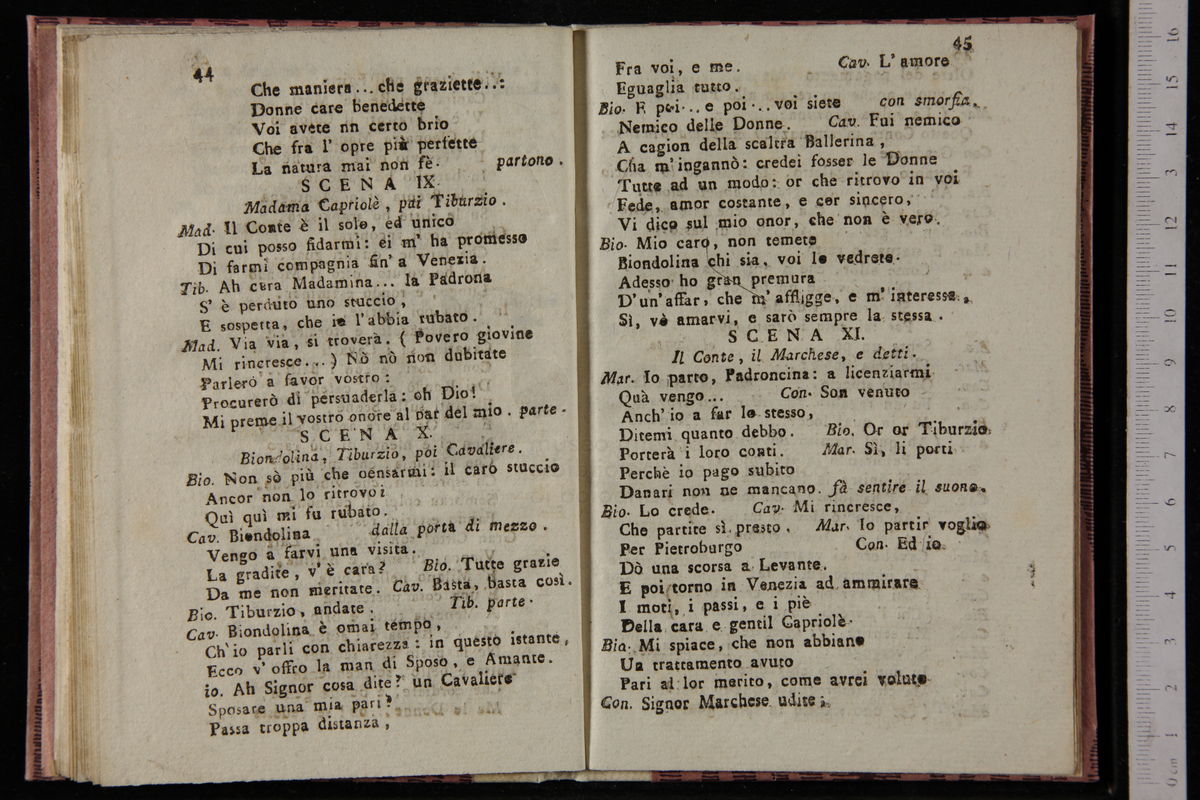 44
Che maniera... che graziette..:
Donne care benedette
Voi avete nn certo brio
Che fra l' opre più perfette
La natura mai non fè. partono.
SCENA IX.
Madama Capriolè, poi Tiburzio.
Mad. Il Conte è il solo, ed unico
Di cui posso fidarmi: ei m' ha promesso
Di farmi compagnia fin' a Venezia.
Tib. Ah cara Madamina... la Padrona
S' è perduto uno stuccio,
E sospetta, che io l'abbia rubato.
Mad. Via via, si troverà. (Povero giovine
Mi rincresce...) Nò nò non dubitate
Parlerò a favor vostro:
Procurerò di persuaderla: oh Dio!
Mi preme il vostro onore al par del mio. parte.
SCENA X.
Biondolina, Tiburzio, poi Cavaliere.
Bio. Non sò più che pensarmi: il caro stuccio
Ancor non lo ritrovo:
Quì quì mi fu rubato.
Cav. Biondolina dalla porta di mezzo.
Vengo a farvi una visita.
La gradite, v'è cara? Bio. Tutte grazie
Da me non meritate. Cav. Basta, basta così.
Bio. Tiburzio, andate. Tib. parte.
Cav. Biondolina è omai tempo,
Ch'io parli con chiarezza: in questo istante,
Ecco v' offro la man di Sposo, e Amante.
io. Ah Signor cosa dite? un Cavaliere
Sposare una mia pari?
Passa troppa distanza,
45
Fra voi, e me. Cav. L' amore
Eguaglia tutto.
Bio. E poi... e poi... voi siete con smorfia.
Nemico delle Donne. Cav. Fui nemico
A cagion della scaltra Ballerina,
Cha m'ingannò: credei fosser le Donne
Tutte ad un modo: or che ritrovo in voi
Fede, amor costante, e cor sincero,
Vi dico sul mio onor, che non è vero.
Bio. Mio caro, non temete
Biondolina chi sia, voi lo vedrete.
Adesso ho gran premura
D'un'affar, che m'affligge, e m'interessa,
Sì, vò amarvi, e sarò sempre la stessa.
SCENA XI.
Il Conte, il Marchese, e detti.
Mar. Io parto, Padroncina: a licenziarmi
Quà vengo... Con. Son venuto
Anch'io a far lo stesso,
Ditemi quanto debbo. Bio. Or or Tiburzio
Porterà i loro conti. Mar. Sì, li porti
Perchè io pago subito
Danari non ne mancano. fà sentire il suono.
Bio. Lo crede. Cav. Mi rincresce,
Che partite sì presto. Mar. Io partir voglio
Per Pietroburgo Con. Ed io
Dò una scorsa a Levante.
E poi torno in Venezia ad ammirare
I moti, i passi, e i piè
Della cara e gentil Capriolè.
Bio. Mi spiace, che non abbiano
Un trattamento avuto
Pari al lor merito, come avrei voluto
Con. Signor Marchese udite;